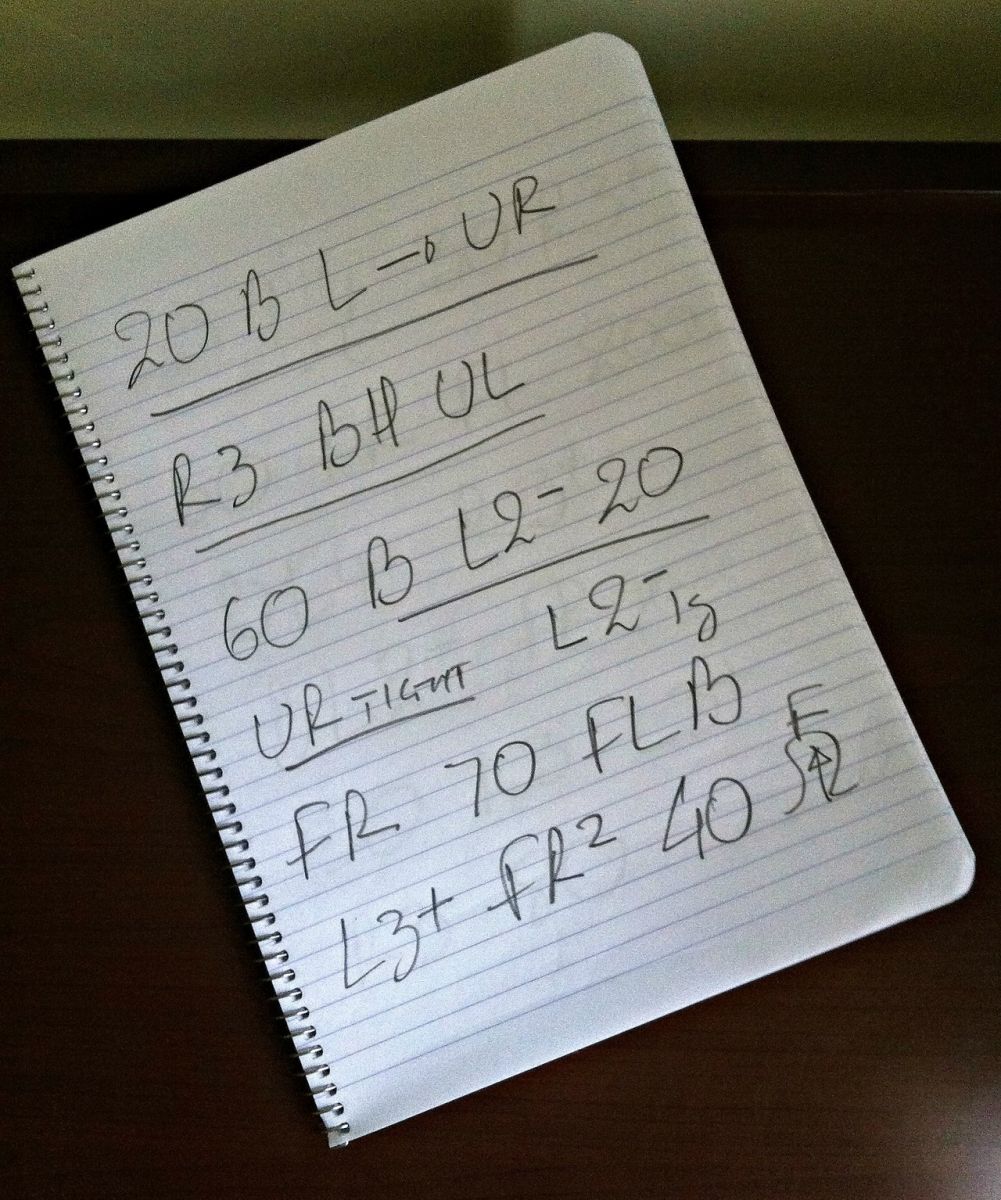 20 B L → UR
R3 BH UL
60 B L2 - 20
UR TIGHT L2 -
FR 70 FL B
L3+ FR2 40